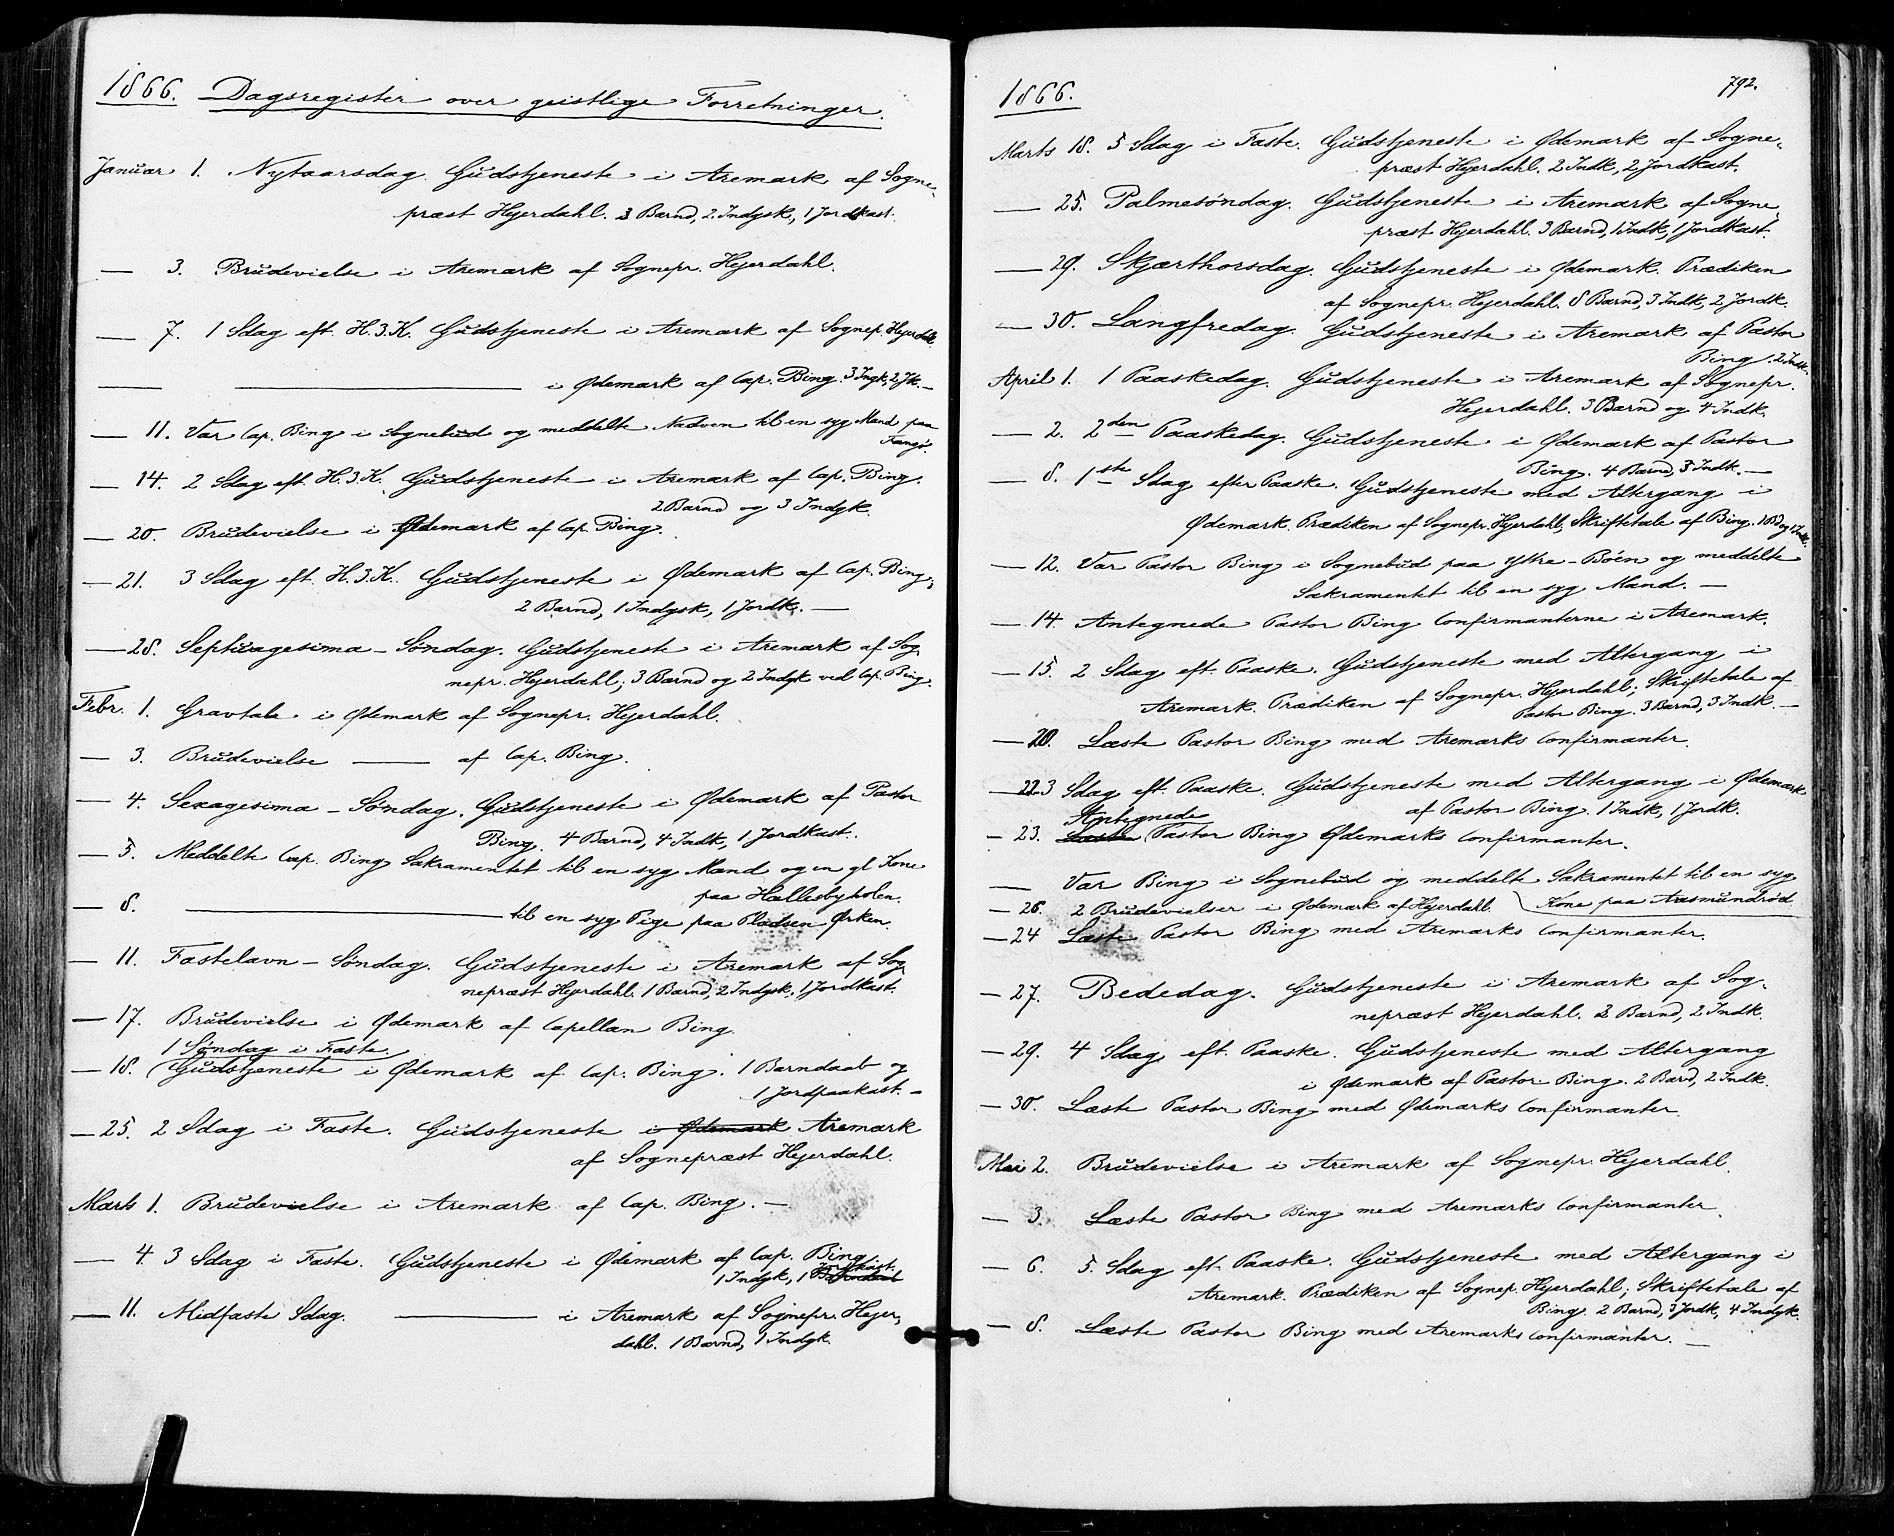 1866. Dagsregister over geistlige Forretninger.
Januar 1. Nytaarsdag. Gudstjeneste i Aremark af Sogne-
præst Hejerdahl. 3 Barnd, 2 Indgsk, 1 Jordkast.
— 3. Brudevielse i Aremark af Sognepr. Hejerdahl.
— 7. 1 Sdag eft. H.3.K. Gudstjeneste i Aremark af Sognep. Hejerdahl.
— — i Ødemark af Cap. Bing. 3 Ingk, 2 Jk. —
— 11. Var Cap. Bing i Sognebud og meddelte Nadven til en syg Mand paa
— 14. 2 Sdag eft. H.3.K. Gudstjeneste i Aremark af Cap. Bing.
2 Barnd og 3 Indgk.
— 20. Brudevielse i Ødemark af Cap. Bing.
— 21. 3 Sdag eft. H.3.K. Gudstjeneste i Ødemark af Cap. Bing,
2 Barnd, 1 Indgsk, 1 Jordk. —
— 28. Septuagesima – Søndag. Gudstjeneste i Aremark af Sog-
nepr. Hejerdahl; 3 Barnd og 2 Indgk ved Cap. Bing.
Febr. 1. Gravtale i Ødemark af Sognepr. Hejerdahl.
— 3. Brudevielse — af Cap. Bing.
— 4. Sexagesima – Søndag. Gudstjeneste i Ødemark af Pastor
Bing. 4 Barnd, 4 Indk, 1 Jordkast.
— 5. Meddelte Cap. Bing Sakramentet til en syg Mand og en gl Kone
paa Hallesbyholen.
— 8. — til en syg Pige paa Pladsen Ørken.
— 11. Fastelavn – Søndag. Gudstjeneste i Aremark af Sog-
nepræst Hejerdahl. 1 Barnd, 2 Indgsk, 1 Jordkast.
— 17. Brudevielse i Ødemark af Capellan Bing.
1 Søndag i Faste.
— 18. Gudstjeneste i Ødemark af Cap. Bing. 1 Barndaab og
1 Jordpaakast. —
— 25. 2 Sdag i Faste. Gudstjeneste i Ødemark Aremark
af Sognepræst Hejerdahl.
Marts 1. Brudevielse i Aremark af Cap. Bing. —
— 4. 3 Sdag i Faste. Gudstjeneste i Ødemark af Cap. Bing
Jordkast.
1 Indgk, 1 Barndaab
— 11. Midfaste Sdag. — i Aremark af Sognepr. Hejer-
dahl. 1 Barnd, 1 Indgk.
792.
1866.
Marts 18. 5 Sdag i Faste. Gudstjeneste i Ødemark af Sogne-
præst Hejerdahl. 2 Indk, 2 Jordkast.
— 25. Palmesøndag. Gudstjeneste i Aremark af Sogne-
præst Hejerdahl. 3 Barnd, 1 Indk, 1 Jordkast.
— 29. Skjærthorsdag. Gudstjeneste i Ødemark. Prædiken
af Sognepr. Hejerdahl. 8 Barnd, 3 Indk, 2 Jordk.
— 30. Langfredag. Gudstjeneste i Aremark af Pastor
Bing. 2 Indk.
April 1. 1 Paaskedag. Gudstjeneste i Aremark af Sognepr.
Hejerdahl. 3 Barnd og 4 Indk.
— 2. 2den Paaskedag. Gudstjeneste i Ødemark af Pastor
Bing. 4 Barnd, 3 Indk. —
— 8. 1ste Sdag efter Paaske. Gudstjeneste med Altergang i
Ødemark. Prædiken af Sognepr. Hejerdahl, Skriftetale af Bing. 1 Bd og 1 Indk.
— 12. Var Pastor Bing i Sognebud paa Ystre – Böen og meddelte
Sakramentet til en syg Mand. —
— 14. Antegnede Pastor Bing Confirmanterne i Aremark.
— 15. 2 Sdag eft. Paaske. Gudstjeneste med Altergang i
Aremark. Prædiken af Sognepr. Hejerdahl; Skriftetale af
Pastor Bing. 3 Barnd, 3 Indk. —
— 20. Læste Pastor Bing med Aremarks Confirmanter.
— 22. 3 Sdag eft. Paaske. Gudstjeneste med Altergang i Ødemark
af Pastor Bing. 1 Indk, 1 Jordk.
Antegnede
— 23. Læste Pastor Bing Ødemarks Confirmanter.
— Var Bing i Sognebud og meddelte Sakramentet til en syg
Kone paa Aasmundrød
— 26. 2 Brudevielser i Ødemark af Hejerdahl.
— 24 Læste Pastor Bing med Aremarks Confirmanter.
— 27. Bededag. Gudstjeneste i Aremark af Sog-
nepræst Hejerdahl. 2 Barnd, 2 Indk.
— 29. 4 Sdag eft. Paaske. Gudstjeneste med Altergang
i Ødemark af Pastor Bing. 2 Barnd, 2 Indk.
— 30. Læste Pastor Bing med Ødemarks Confirmanter.
Mai 2. Brudevielse i Aremark af Sognepr. Hejerdahl.
— 3. Læste Pastor Bing med Aremarks Confirmanter.
— 6. 5. Sdag eft. Paaske. Gudstjeneste med Altergang i
Aremark. Prædiken af Sognep. Hejerdahl; Skriftetale af
Bing. 2 Barnd, 3 Jordk, 4 Indgk.
— 8. Læste Pastor Bing med Aremarks Confirmanter. —